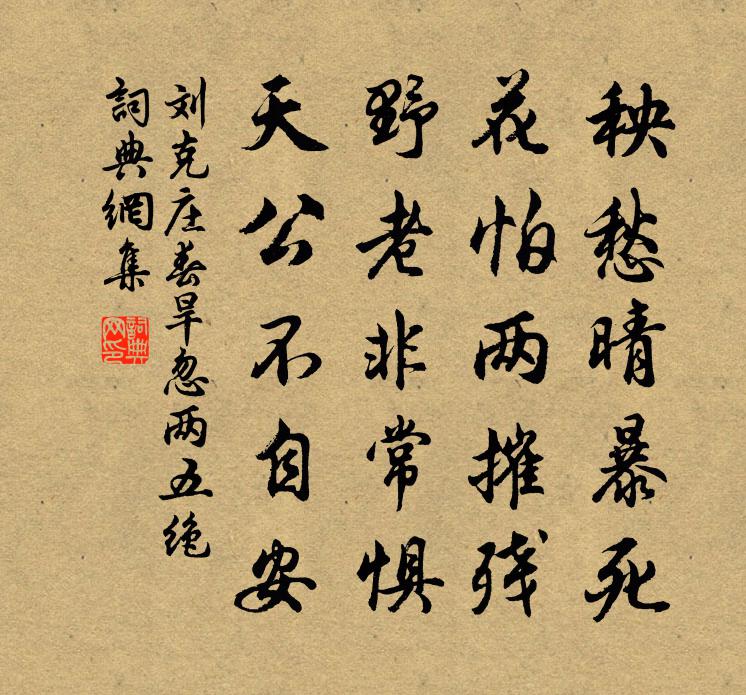 秧愁晴暴死
花怕两摧残
野老非常惧
天公不自安
刘克庄春旱忽两五绝
詞典網集
詞典网印